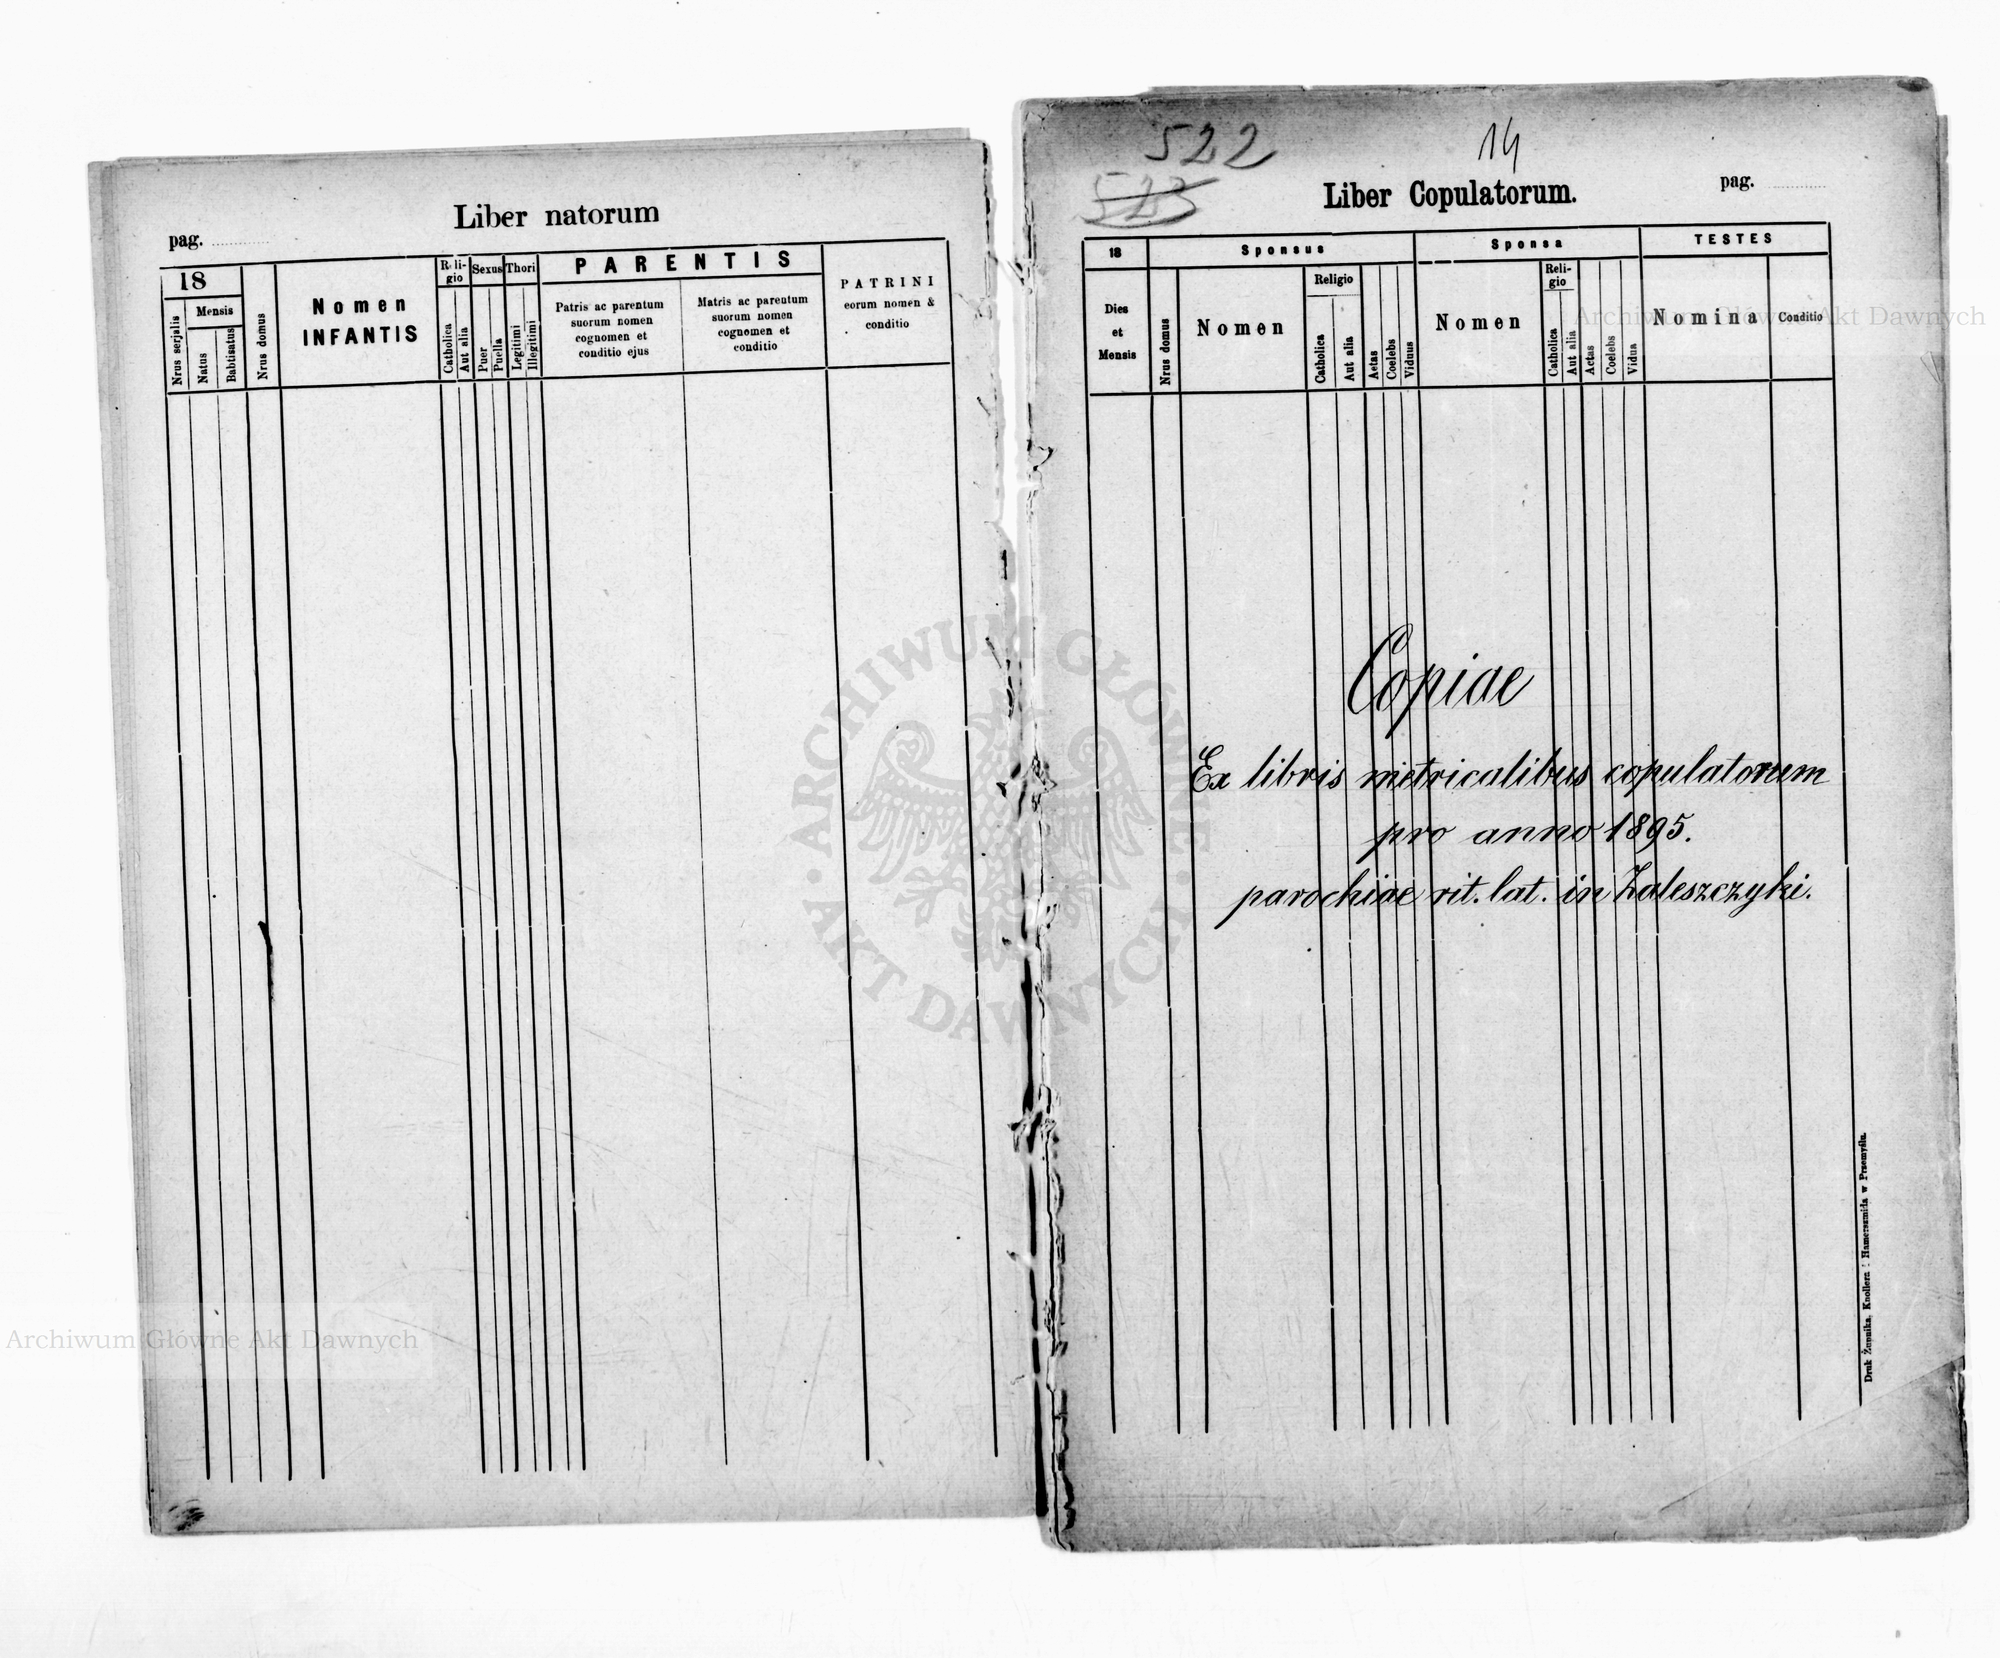 Liber natorum
pag.
18
Mensis
Nrus serjalis
Natus
Babtisatus
Nrus domus
Nomen
INFANTIS
Reli-
gio
Catholica
Aut alia
Sexus
Puer
Puella
Thori
Legitimi
Illegitimi
PARENTIS
Patris ac parentum
suorum nomen
cognomen et
conditio ejus
Matris ac parentum
suorum nomen
cognomen et
conditio
PATRINI
eorum nomen &
conditio
522
14
523
Liber Copulatorum.
pag.
18
Dies
et
Mensis
Sponsus
Nrus domus
Nomen
Religio
Catholica
Aut alia
Aetas
Coelebs
Viduus
Sponsa
Nomen
Reli-
gio
Catholica
Aut alia
Actas
Coelebs
Vidua
TESTES
Nomina
Conditio
Copiae
Ex libris metricalibus copulatorum
pro anno 1895.
parochiae rit. lat. in Zaleszczyki.
Druk Żupnika, Knollera i Hamerszmida w Przemyślu.
ARCHIWUM GŁÓWNE
AKT DAWNYCH
Archiwum Główne Akt Dawnych
Archiwum Główne Akt Dawnych